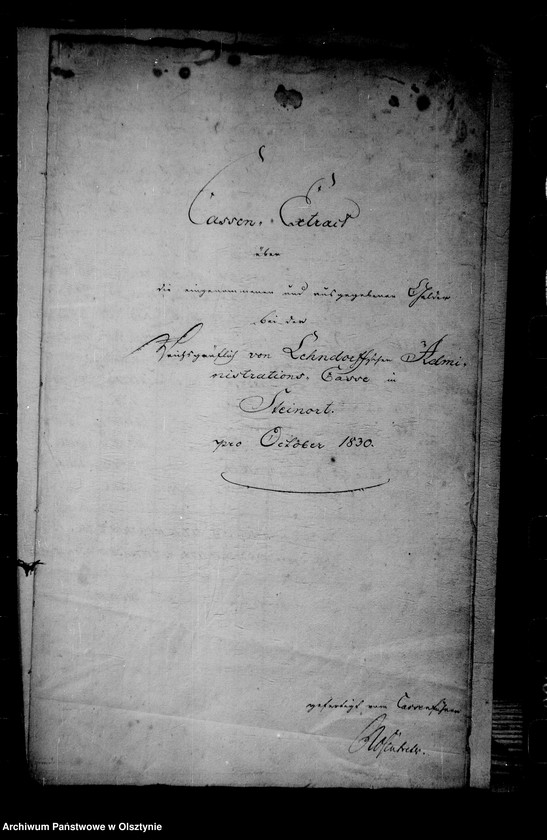 Cassen-Extract
über
die eingenommenen und ausgegebenen Gelder
bei der
Reichsgräflich von Lehndorffschen Admi-
nistrations-Casse in
Steinort.
pro October 1830.
gefertigt vom Cassenführer
Archiwum Państwowe w Olsztynie